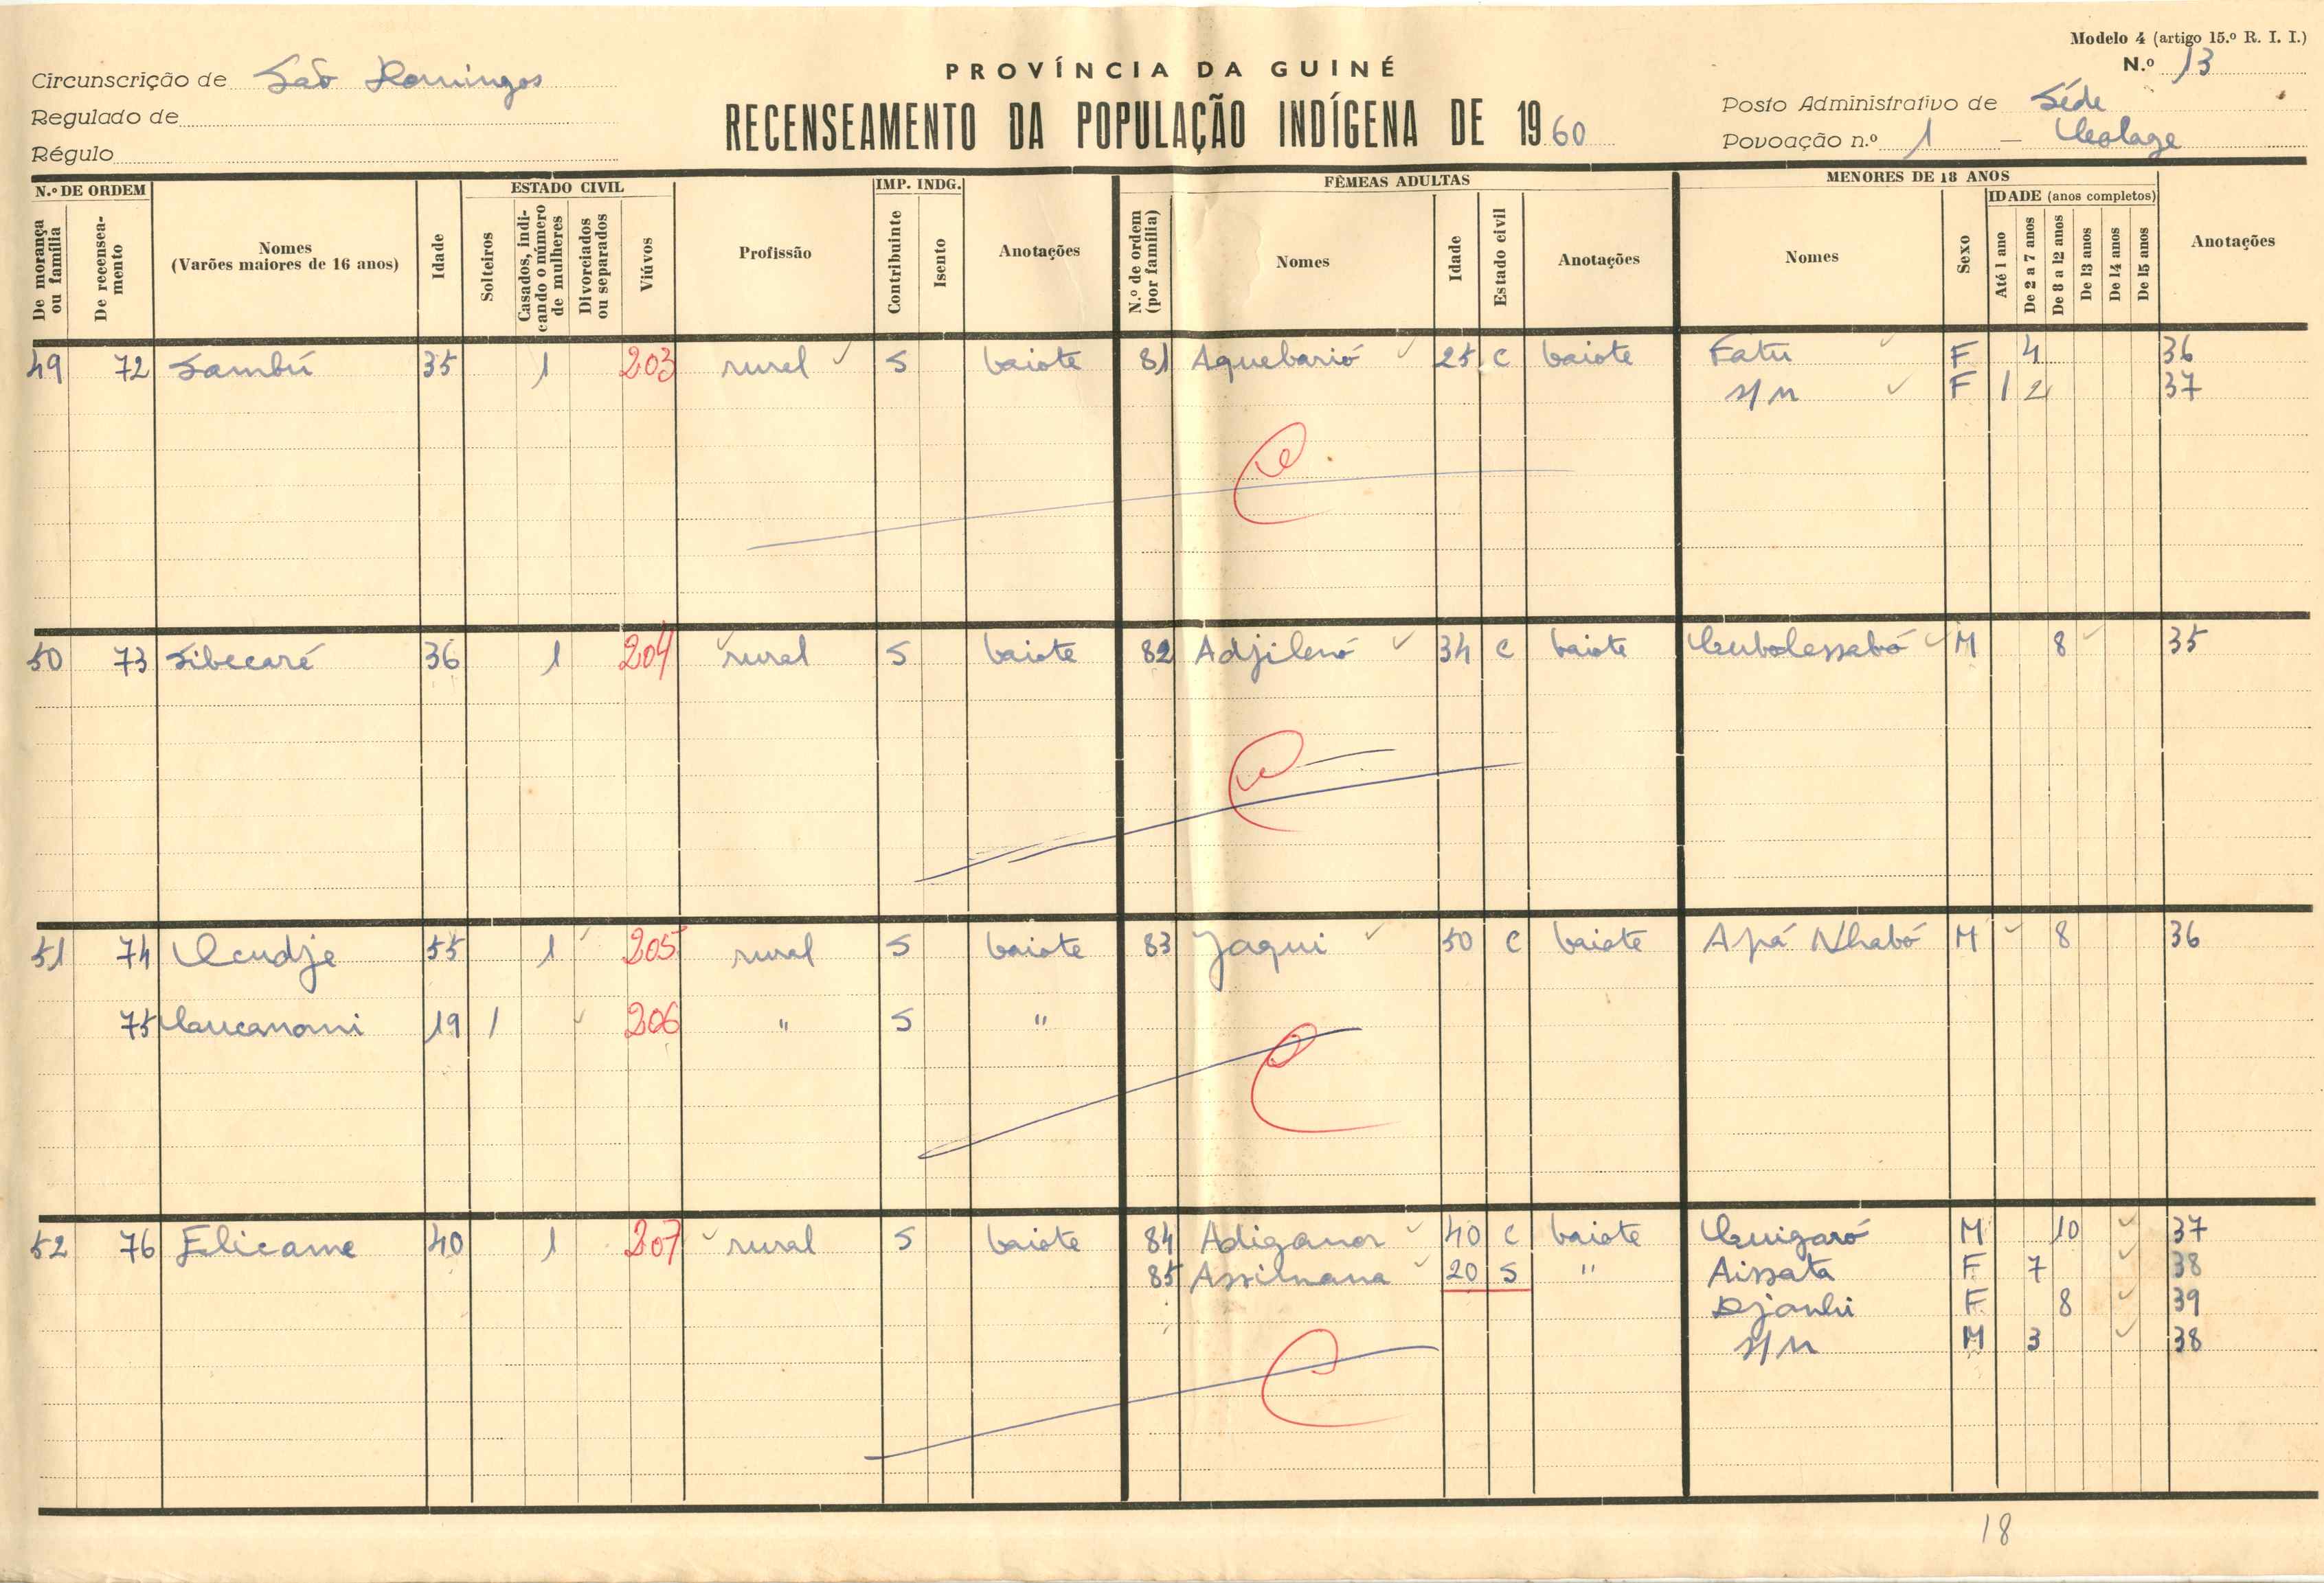 Modelo 4 (artigo 15.º R. I. I.)
N.º 13
Circunscrição de São Domingos
PROVÍNCIA DA GUINÉ
Posto Administrativo de Séde
Regulado de
RECENSEAMENTO DA POPULAÇÃO INDÍGENA DE 1960
Povoação n.º 1 —
Régulo
N.º DE ORDEM
De morança ou família
De recensea-mento
Nomes
(Varões maiores de 16 anos)
Idade
ESTADO CIVIL
Solteiros
Casados, indi-cando o número de mulheres
Divorciados ou separados
Viúvos
Profissão
IMP. INDG.
Contribuinte
Isento
Anotações
FÊMEAS ADULTAS
N.º de ordem (por família)
Nomes
Idade
Estado civil
Anotações
MENORES DE 18 ANOS
Nomes
Sexo
IDADE (anos completos)
Até 1 ano
De 2 a 7 anos
De 8 a 12 anos
De 13 anos
De 14 anos
De 15 anos
Anotações
49 72 Sambú 35 1 203 rural S baiote 81 Aquebarió 25 C baiote Fatu F 4 36
s/n F 1 2 37
50 73 Sibecaré 36 1 204 rural S baiote 82 Adjilenó 34 C baiote M 8 35
51 74 55 1 205 rural S baiote 83 Jaqui 50 C baiote Apá Nhabó M 8 36
75 19 1 206 " S "
52 76 Elicame 40 1 207 rural S baiote 84 40 C baiote M 10 37
85 Assilnana 20 S " Aissata F 7 38
F 8 39
s/n M 3 38
18